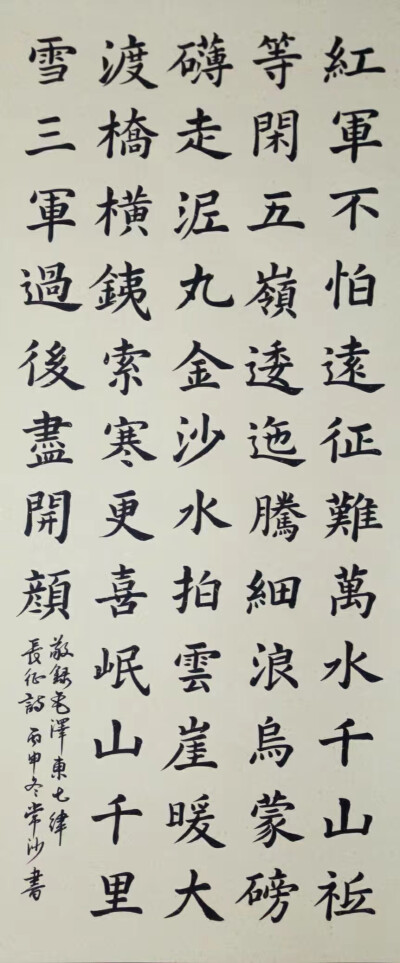 紅軍不怕遠征難萬水千山祗
等閑五嶺逶迤騰細浪烏蒙磅
礴走泥丸金沙水拍雲崖暖大
渡橋横銕索寒更喜岷山千里
雪三軍過後盡開顔
敬録毛澤東七律
長征詩 丙申冬常沙書